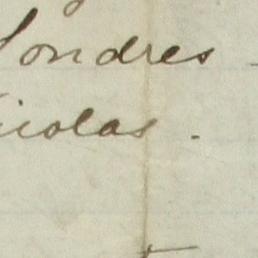 Londres -
icolas -